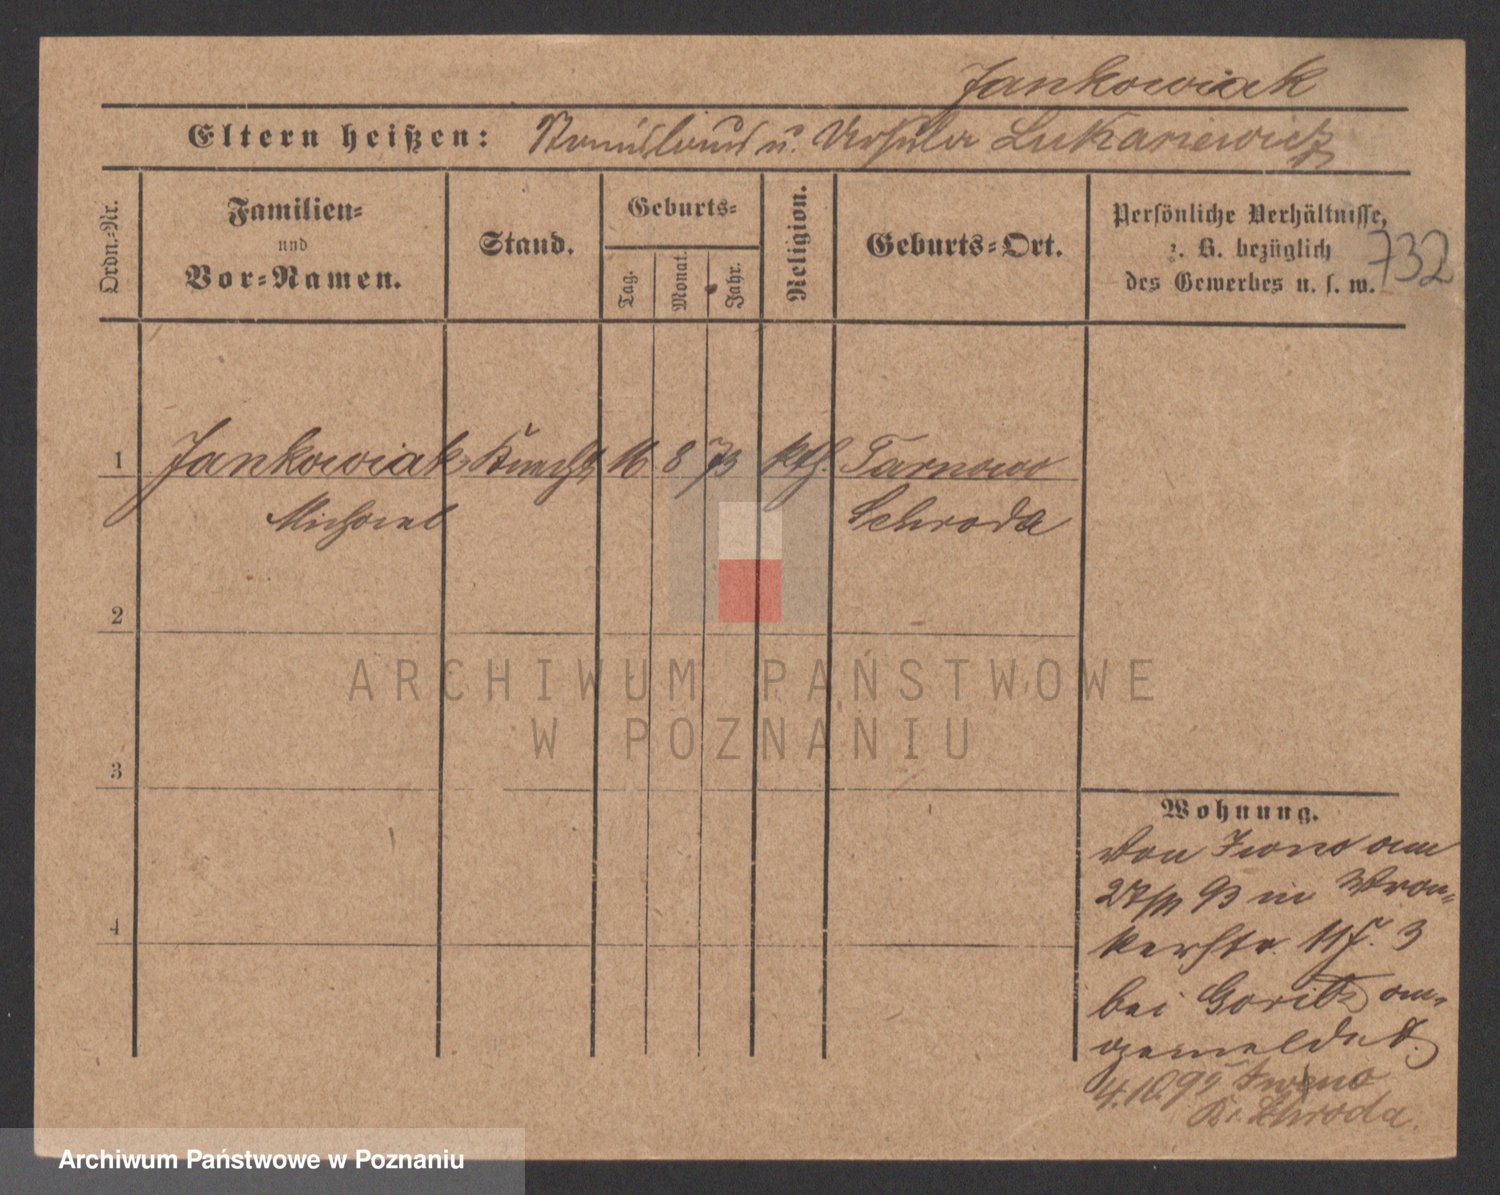 Jankowiak
Eltern heißen: Stanislaus u. Ursula Lukasiewicz
Ordn.-Nr.
Familien-
und
Vor-Namen.
Stand.
Geburts-
Tag.
Monat.
Jahr.
Religion.
Geburts-Ort.
Persönliche Verhältnisse,
z. B. bezüglich
des Gewerbes u. s. w.
732
1 Jankowiak Knecht 16 8 73 kth. Tarnowo
Michael Schroda
2
3
4
Wohnung.
Von Iwno am
27/11 93 in Wron-
kerstr. 11 3
bei an-
gemeldet.
4.10.95 Iwno
Kr. Schroda.
ARCHIWUM PAŃSTWOWE
W POZNANIU
Archiwum Państwowe w Poznaniu